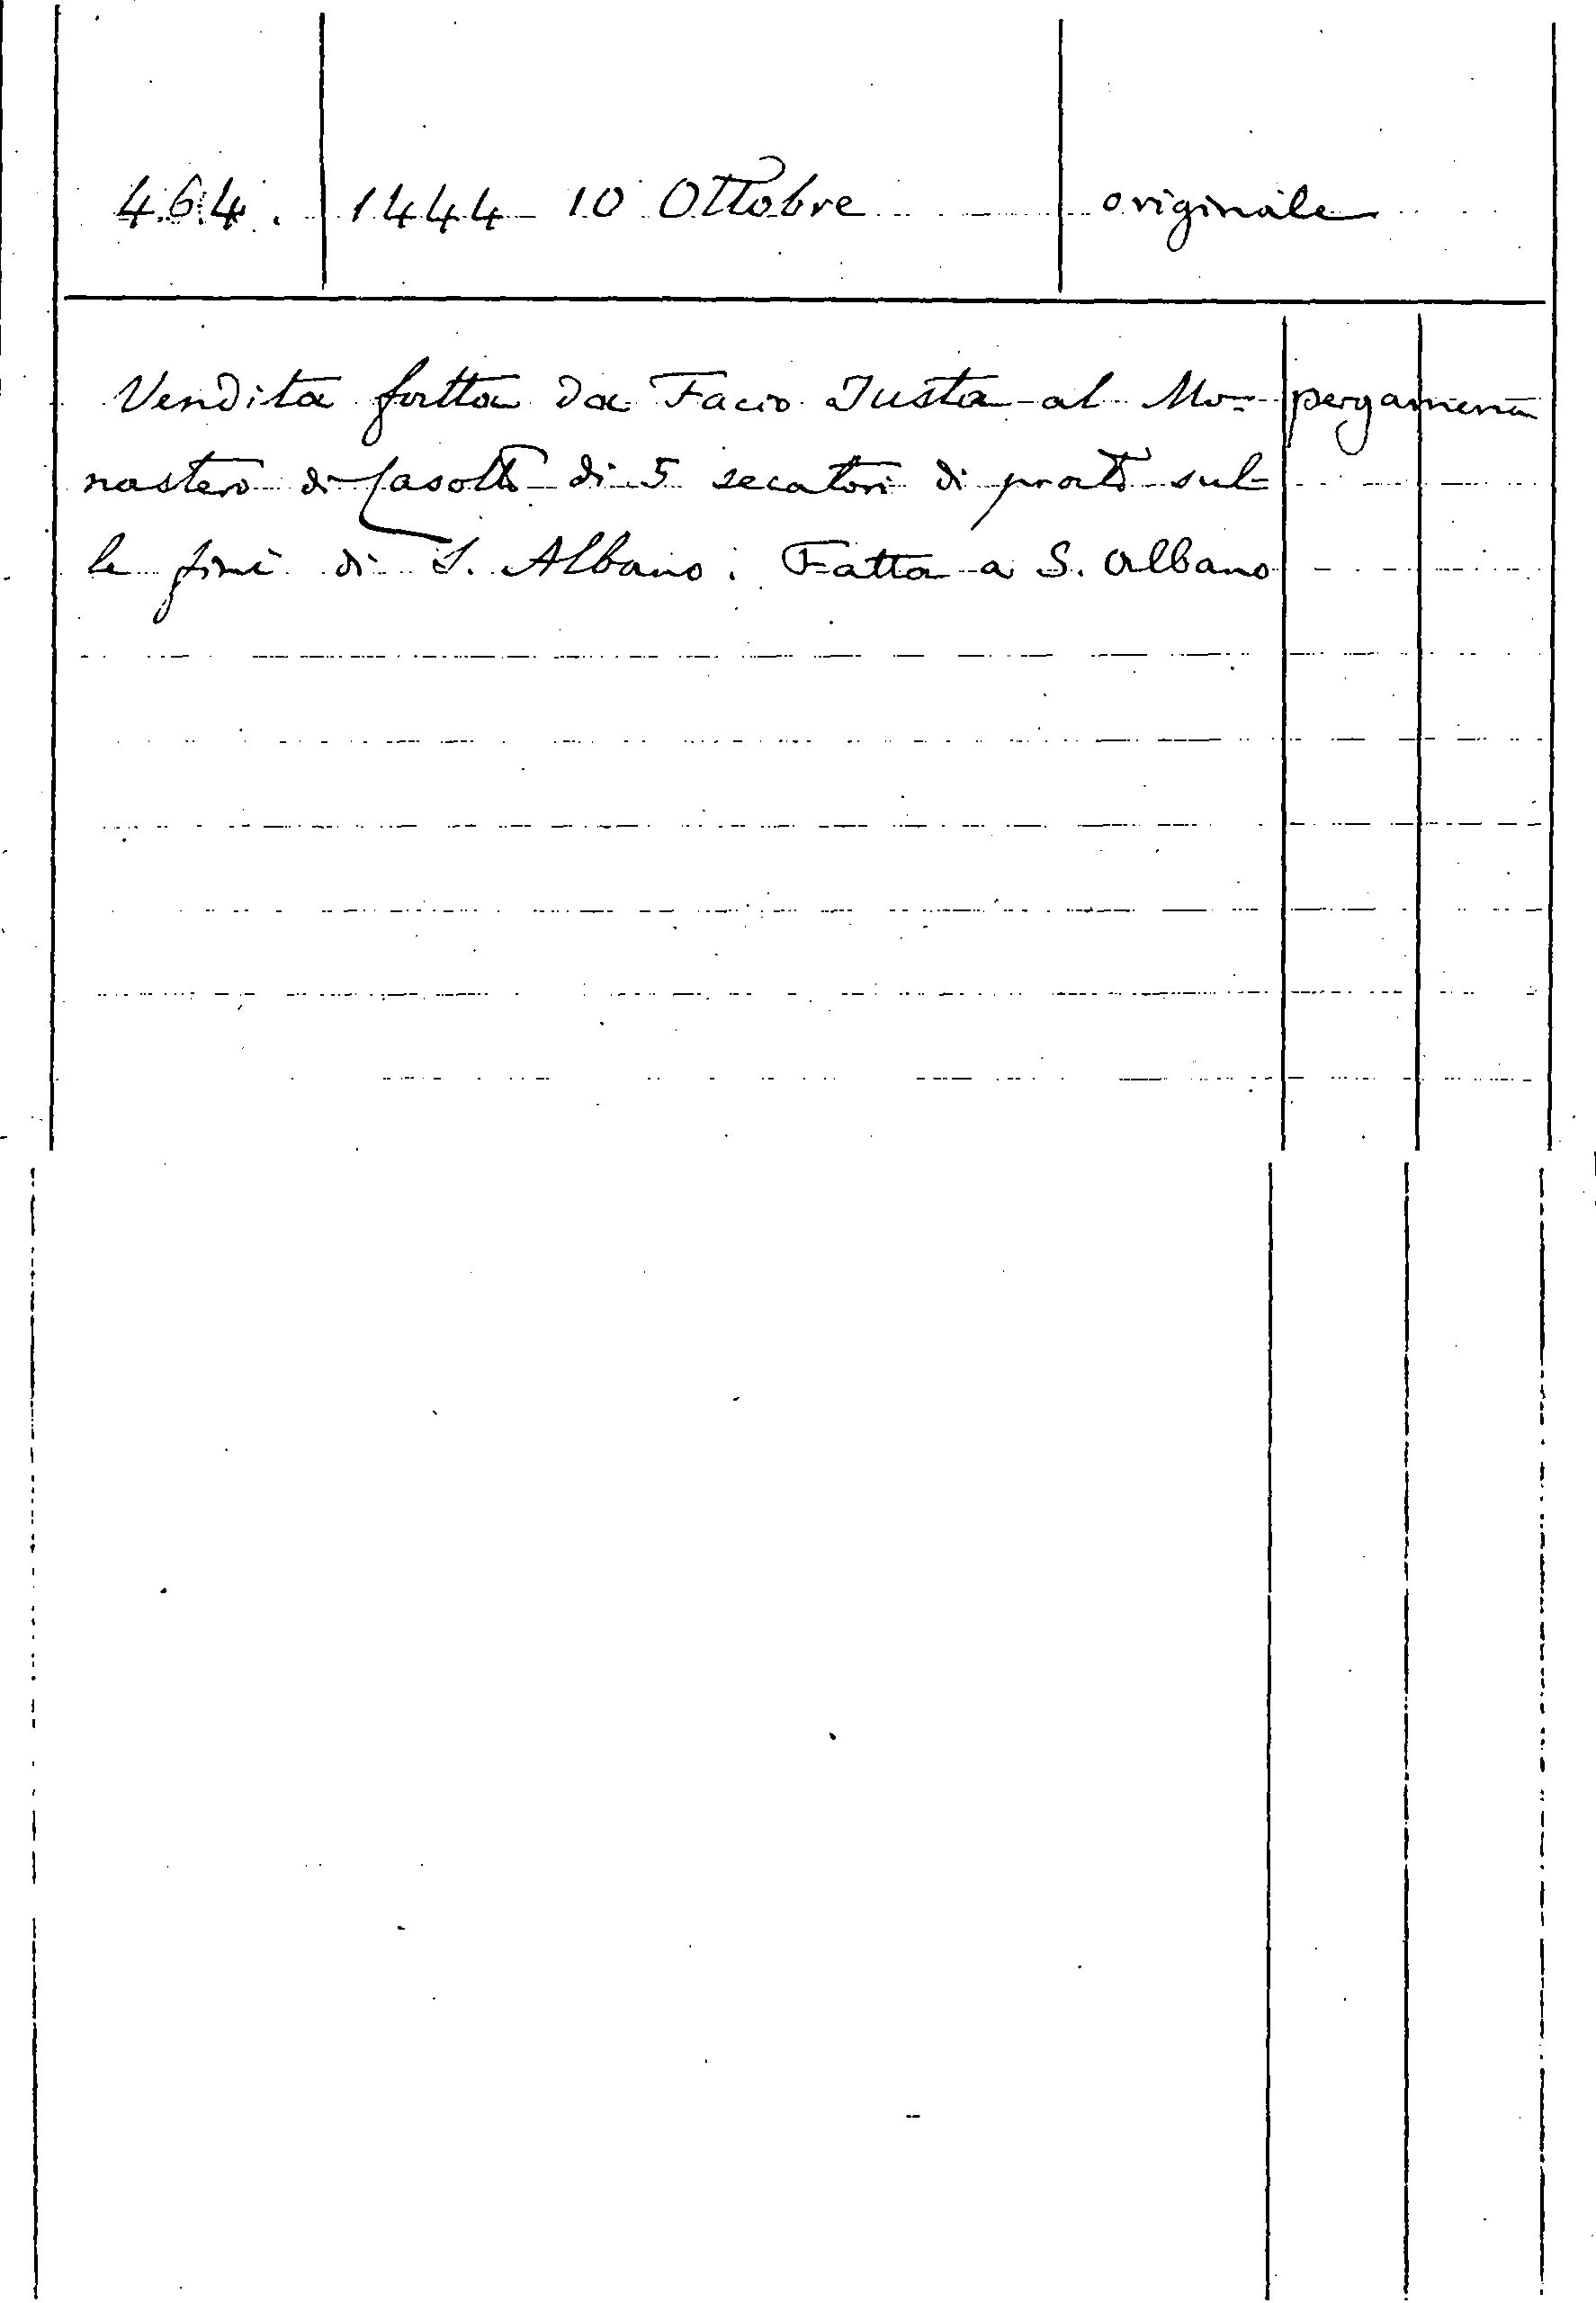 464. 1444 10 Ottobre originale
Vendita fatta da Facio Justa al Mo= pergamena
nastero di Casotto di 5 secatori di prato sul=
le fini di S. Albano. Fatta a S. Albano